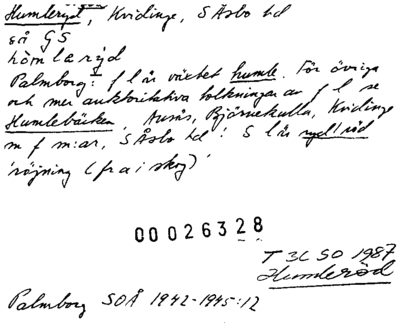 Humleryd, Kvidinge, S Åsbo hd
så GS
hömlarýd
Palmborg: f l är växtet humle. För övriga
och mer auktoritativa tolkningar av f l se
Humlebäcken, Ausås, Björnekulla, Kvidinge
m f m:ar, S Åsbo hd! S l är ryd/röd
'röjning (fra i skog)'
00026328
T 3C SO 1987
Humleröd
Palmborg SOÅ 1942-1945:12